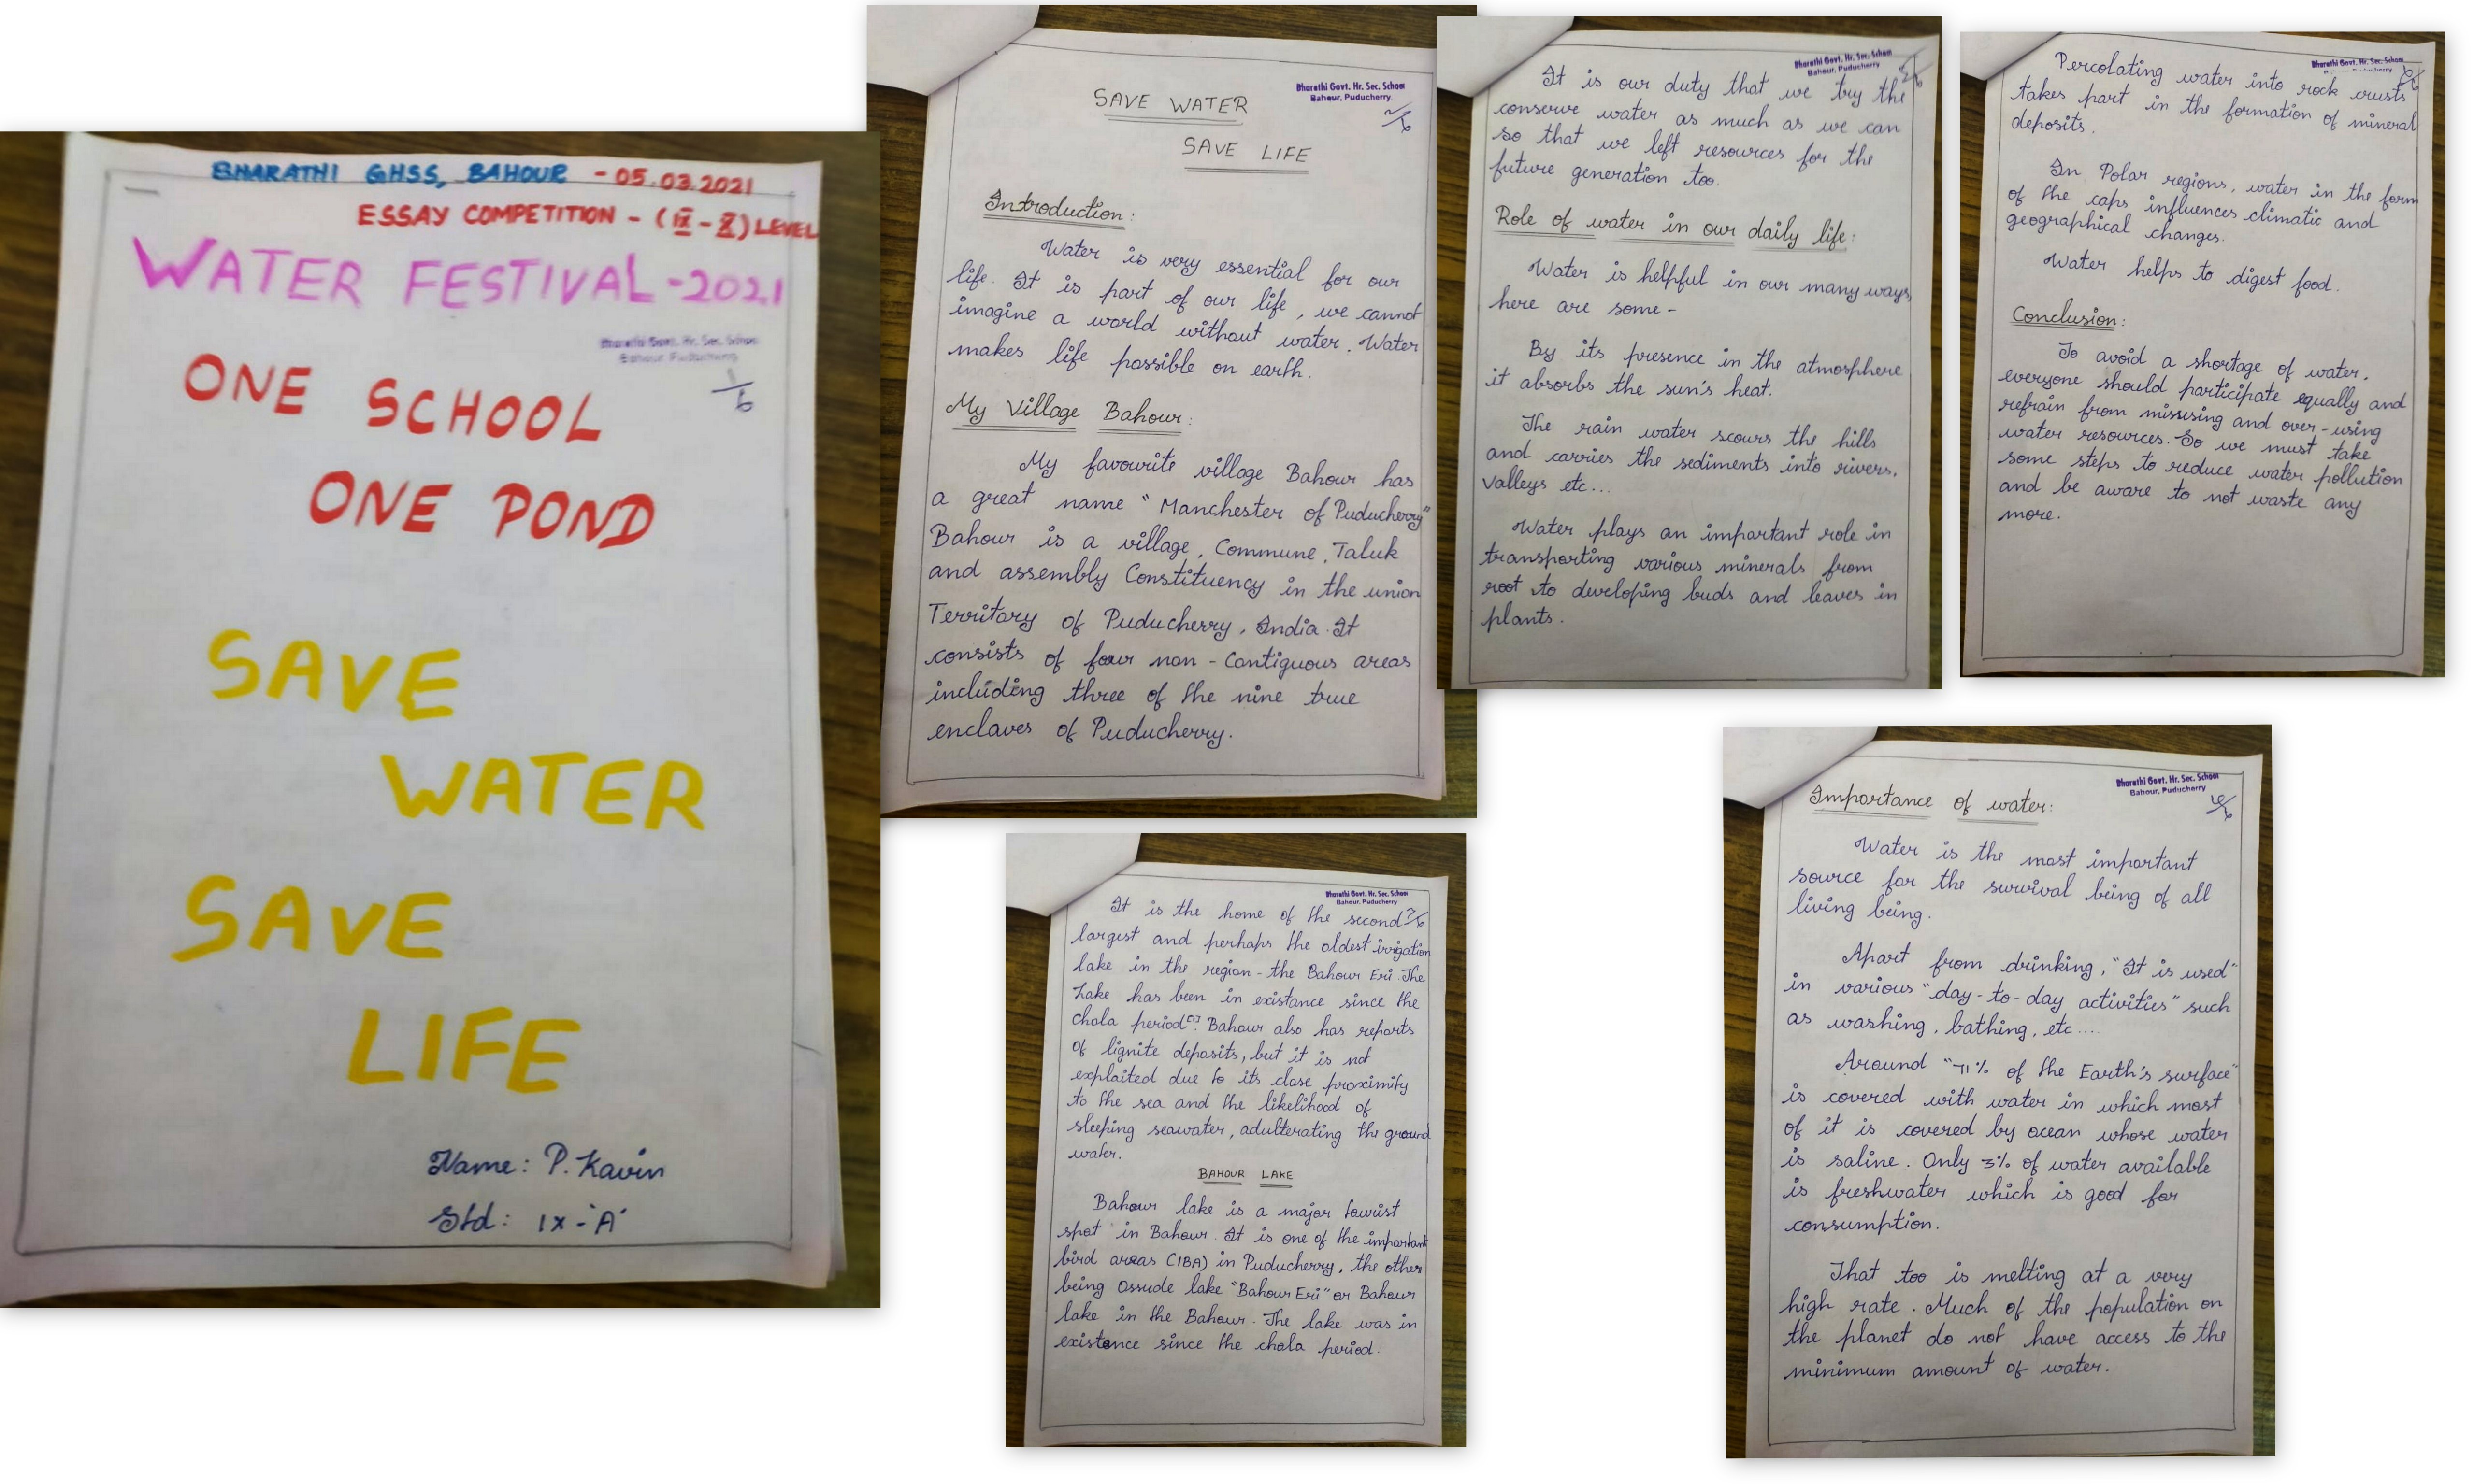 BHARATHI GHSS, BAHOUR - 05.03.2021
ESSAY COMPETITION - (IX - X) LEVEL
WATER FESTIVAL - 2021
Bharathi Govt. Hr. Sec. School
Bahour, Puducherry
ONE SCHOOL
ONE POND
SAVE
WATER
SAVE
LIFE
Name: P. Kavin
Std: IX - 'A'
Bharathi Govt. Hr. Sec. School
Bahour, Puducherry.
2/6
SAVE WATER
SAVE LIFE
Introduction:
Water is very essential for our
life. It is part of our life, we cannot
imagine a world without water. Water
makes life possible on earth.
My Village Bahour:
My favourite village Bahour has
a great name "Manchester of Puducherry"
Bahour is a village, Commune, Taluk
and assembly Constituency in the union
Territory of Puducherry, India. It
consists of four non - Contiguous areas
including three of the nine true
enclaves of Puducherry.
Bharathi Govt. Hr. Sec. School
Bahour, Puducherry
3/6
It is the home of the second
largest and perhaps the oldest irrigation
lake in the region - the Bahour Eri. The
Lake has been in existance since the
chola period[1]. Bahour also has reports
of lignite deposits, but it is not
explaited due to its close proximity
to the sea and the likelihood of
sleeping seawater, adulterating the ground
water.
BAHOUR LAKE
Bahour lake is a major tourist
spot in Bahour. It is one of the important
bird areas (IBA) in Puducherry, the other
being Ossude lake "Bahour Eri" or Bahour
lake in the Bahour. The lake was in
existence since the chola period.
Bharathi Govt. Hr. Sec. School
Bahour, Puducherry
Importance of water:
Water is the most important
source for the survival being of all
living being.
Apart from drinking, "It is used"
in various "day-to-day activities" such
as washing, bathing, etc....
Around "71% of the Earth's surface"
is covered with water in which most
of it is covered by ocean whose water
is saline. Only 3% of water available
is freshwater which is good for
consumption.
That too is melting at a very
high rate. Much of the population on
the planet do not have access to the
minimum amount of water.
Bharathi Govt. Hr. Sec. School
Bahour, Puducherry
It is our duty that we try the
conserve water as much as we can
so that we left resources for the
future generation too.
Role of water in our daily life:
Water is helpful in our many ways,
here are some -
By its presence in the atmosphere
it absorbs the sun's heat.
The rain water scours the hills
and carries the sediments into rivers,
valleys etc...
Water plays an important role in
transporting various minerals from
root to developing buds and leaves in
plants.
Bharathi Govt. Hr. Sec. School
Percolating water into rock crusts
takes part in the formation of mineral
deposits.
In Polar regions, water in the form
of the caps influences climatic and
geographical changes.
Water helps to digest food.
Conclusion:
To avoid a shortage of water,
everyone should participate equally and
refrain from missusing and over-using
water resources. So we must take
some steps to reduce water pollution
and be aware to not waste any
more.